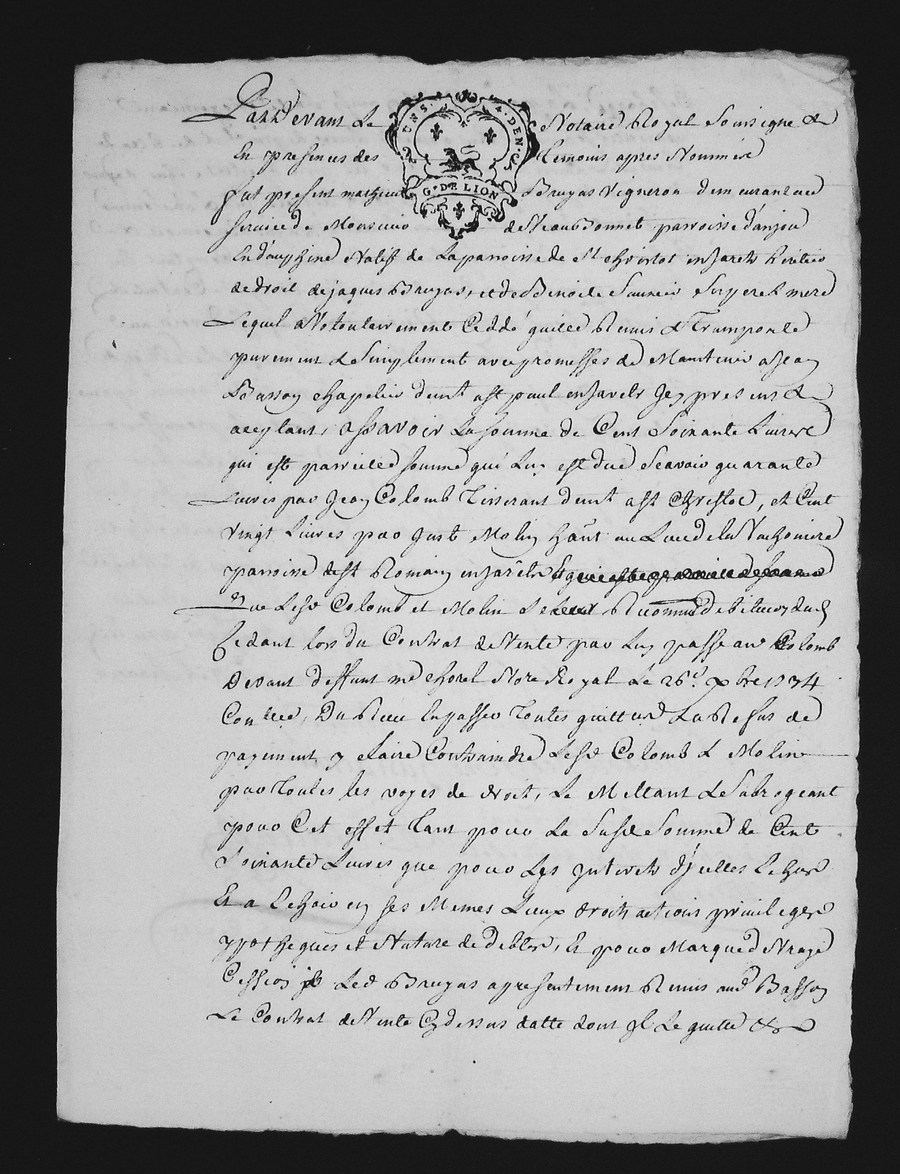 Pard'evant Le Notaire Royal Soussigne &
En presences des temoins apres Nommés
fut present mathieu Bruyas Vigneron demeurant au
service de Monsieur de Beaudonnet parroisse d'anjou
En dauphine Natif de La parroisse de St Christot en Jarets heritier
de droit de jaques Bruyas, et de Benoite Saunier Ses pere et mere
Lequel a Volontairement Ceddé quitté Remis & Transporté
purement & Simplement avec promesses de Maintenir a Jean
Basson chapelier de st paul en Jarets Icy present &
aceptant, assavoir La somme de Cent Soixante Livres
qui est pareille somme qui Luy est due Scavoir quarante
Livres par Jean Colomb Tisserant dud st Christot, et Cent
vingt Livres par Just Molin hãnt au Lieu de la
parroisse de st Romain en Jarets
que Lesd Colomb et Molin Se Reconnu debiteurs dud
Cedant Lors du Contrat de Vente par Luy passé aud Colomb
Devant deffunt me chorel Nore Royal Le 26e xbre 1734
Contrer, Du Reçu En passer Toutes quittances La Refus de
payement y faire Contraindre Lesd Colomb & Molin
par Toutes les voyes de droit, Le Mettant & Subrogeant
pour Cet effet Tant pour La Susd Somme de Cent
Soixante Livres que pour Les Interets d'jcelles Echus
Et a Echoir en ses Memes Lieux droits actions privileges
ypotheques et Nature de debtes, Et pour Marque de Vraye
Cession Led Bruyas a presentement Remis aud Basson
Le Contrat de Vente Cy dessus datté dont Il Le quitte &
2 UNS. 4 DEN.
G. DE LION